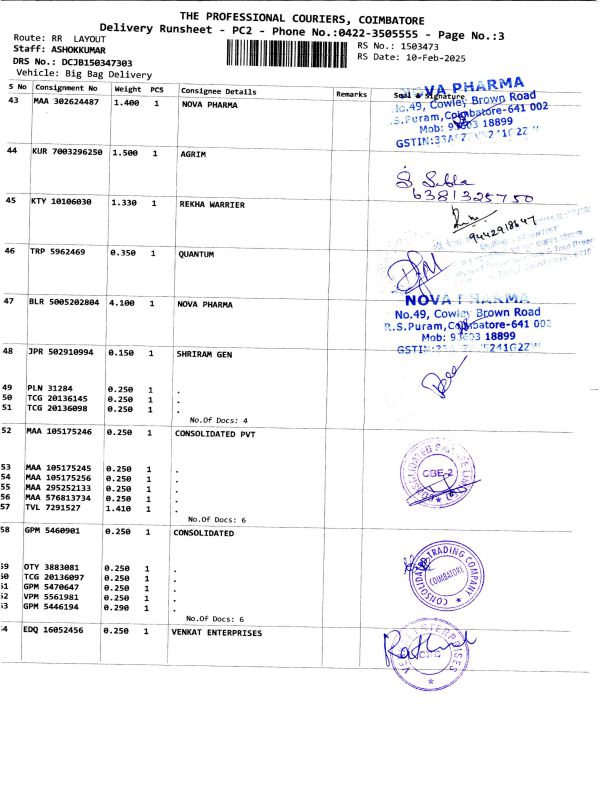 THE PROFESSIONAL COURIERS, COIMBATORE
Delivery Runsheet - PC2 - Phone No.:0422-3505555 - Page No.:3
Route: RR LAYOUT
Staff: ASHOKKUMAR
RS No.: 1503473
DRS No.: DCJB150347303
RS Date: 10-Feb-2025
Vehicle: Big Bag Delivery
S No Consignment No Weight PCS Consignee Details Remarks Seal & Signature
43 MAA 302624487 1.400 1 NOVA PHARMA
NOVA PHARMA
No.49, Cowley Brown Road
R.S.Puram, Coimbatore-641 002
Mob: 93603 18899
GSTIN:33A
44 KUR 7003296250 1.500 1 AGRIM
6381325750
45 KTY 10106030 1.330 1 REKHA WARRIER
9442918647
46 TRP 5962469 0.350 1 QUANTUM
47 BLR 5005202804 4.100 1 NOVA PHARMA
NOVA PHARMA
No.49, Cowley Brown Road
R.S.Puram, Coimbatore-641 002
Mob: 93603 18899
48 JPR 502910994 0.150 1 SHRIRAM GEN
49 PLN 31284 0.250 1 .
50 TCG 20136145 0.250 1 .
51 TCG 20136098 0.250 1 .
No.Of Docs: 4
52 MAA 105175246 0.250 1 CONSOLIDATED PVT
CBE-2
53 MAA 105175245 0.250 1 .
54 MAA 105175256 0.250 1 .
55 MAA 295252133 0.250 1 .
56 MAA 576813734 0.250 1 .
57 TVL 7291527 1.410 1 .
No.Of Docs: 6
58 GPM 5460901 0.250 1 CONSOLIDATED
CONSOLIDATED TRADING COMPANY
COIMBATORE
59 OTY 3883081 0.250 1 .
60 TCG 20136097 0.250 1 .
61 GPM 5470647 0.250 1 .
62 VPM 5561981 0.250 1 .
63 GPM 5446194 0.290 1 .
No.Of Docs: 6
64 EDQ 16052456 0.250 1 VENKAT ENTERPRISES